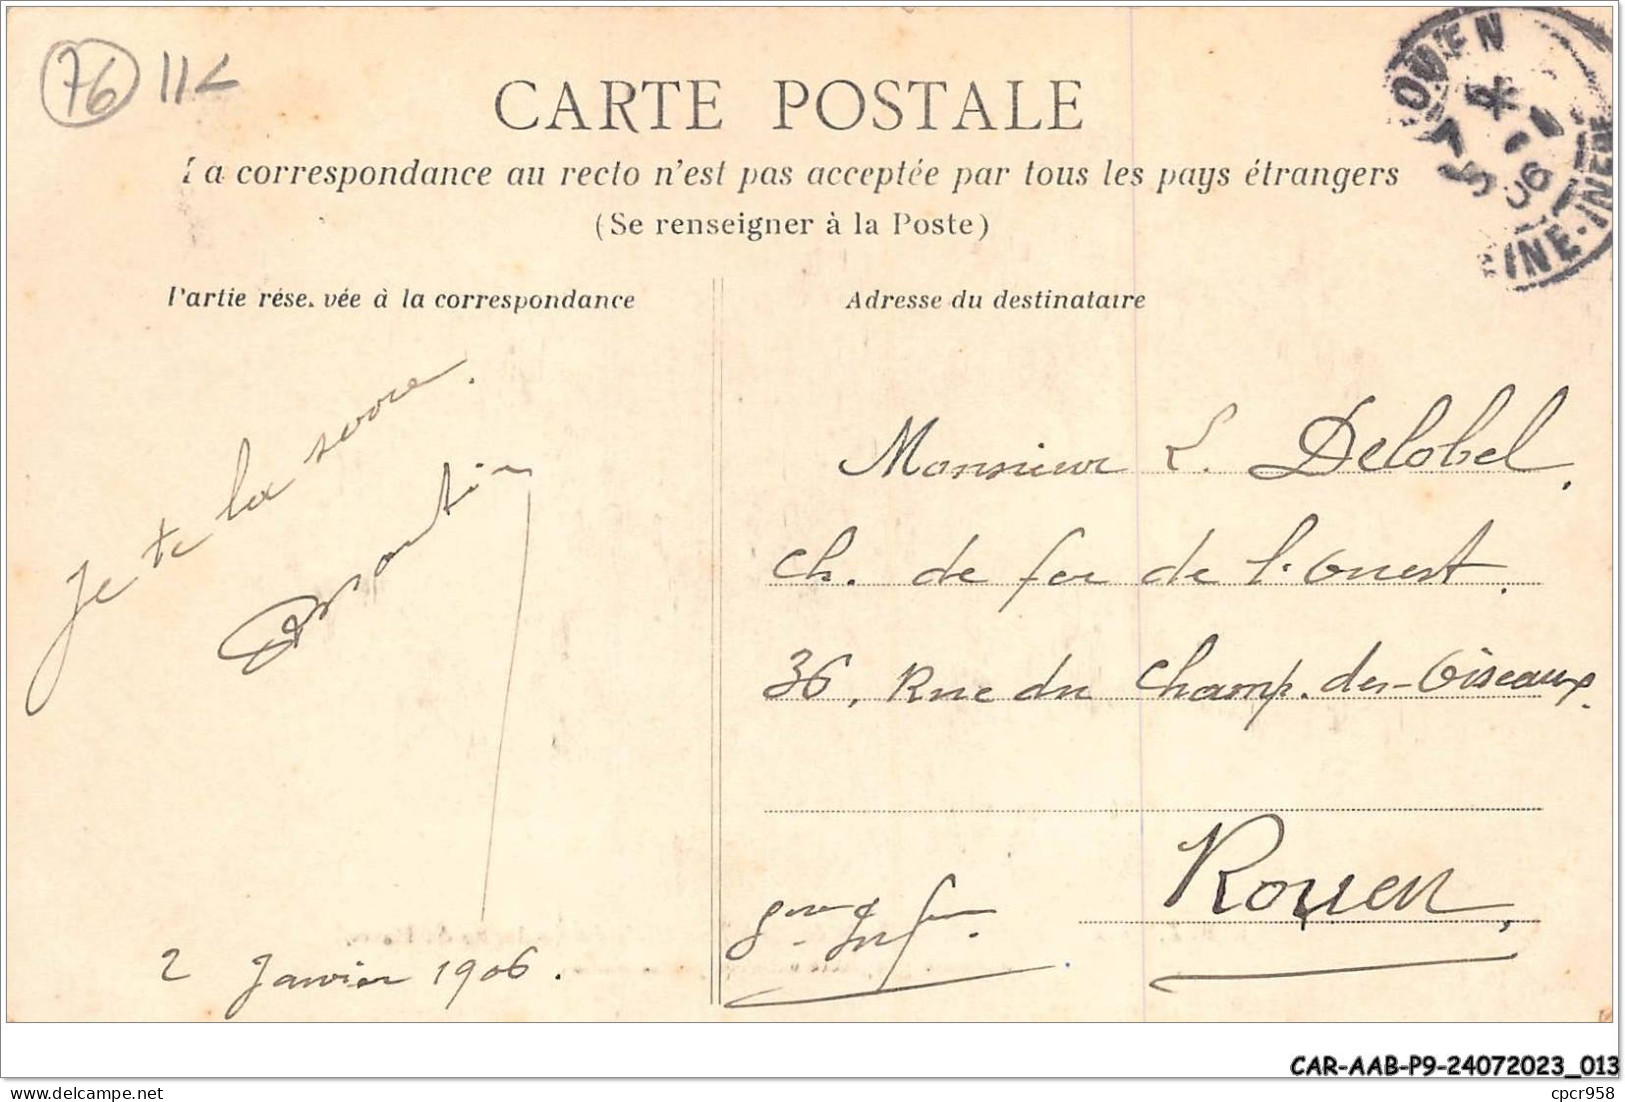 76 11
CARTE POSTALE
La correspondance au recto n'est pas acceptée par tous les pays étrangers
(Se renseigner à la Poste)
Partie réservée à la correspondance
Adresse du destinataire
ROUEN
06
INE-INF
Je te la serre.
2 Janvier 1906.
Monsieur L. Delobel,
Ch. de fer de l'Ouest.
36, Rue du Champ-des-Oiseaux.
Rouen,
CAR-AAB-P9-24072023_013
cpcr958